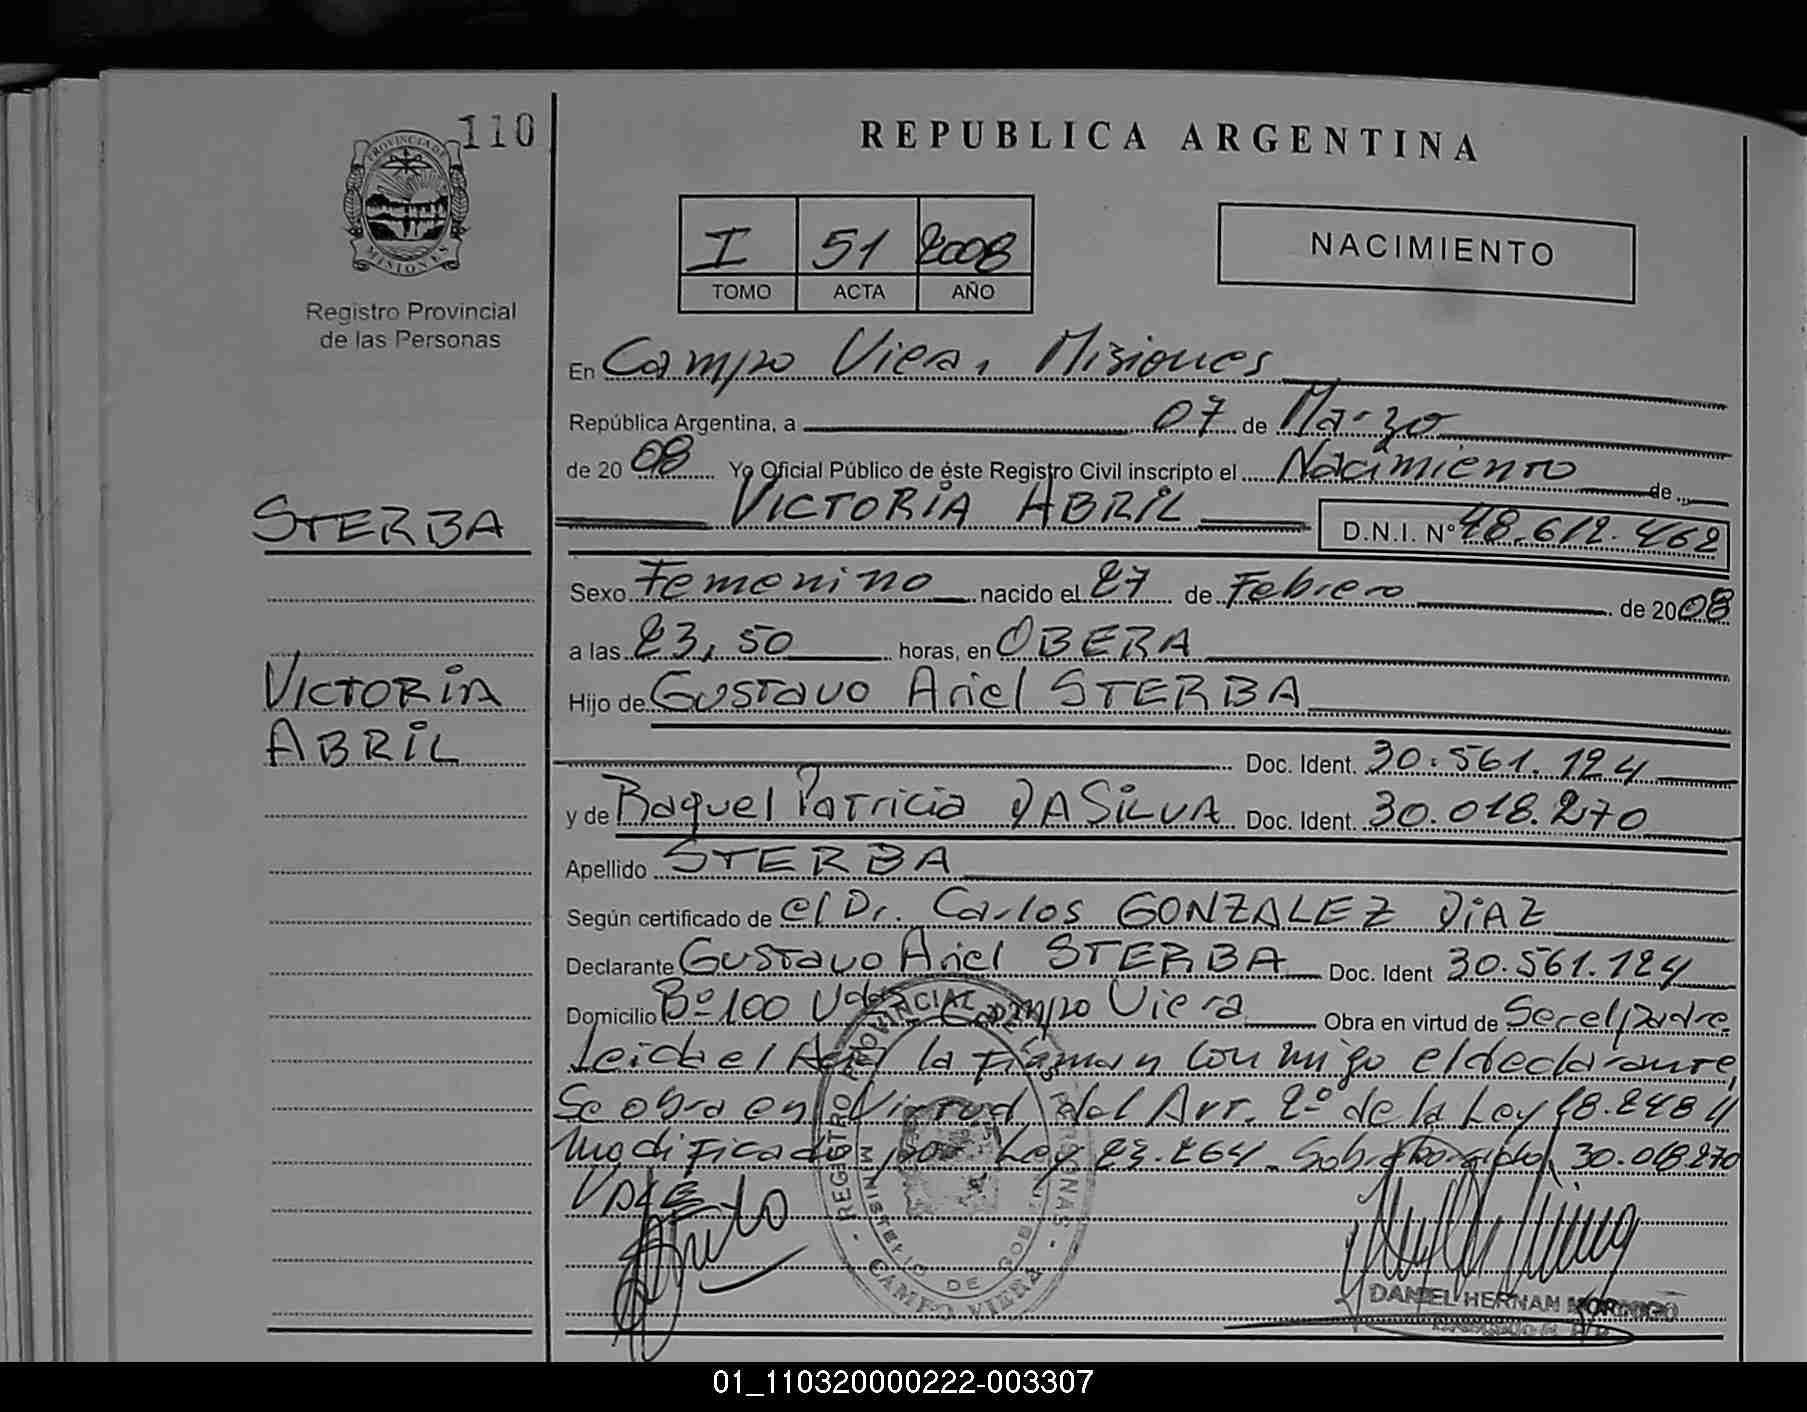 110
PROVINCIA DE
MISIONES
Registro Provincial
de las Personas
STERBA
VICTORIA
ABRIL
REPUBLICA ARGENTINA
I 51 2008
TOMO ACTA AÑO
NACIMIENTO
En Campo Viera, Misiones
República Argentina, a 07 de Marzo
de 20 08 Yo Oficial Público de éste Registro Civil inscripto el Nacimiento de
VICTORIA ABRIL D.N.I. Nº 48.612.462
Sexo Femenino nacido el 27 de Febrero de 2008
a las 23,50 horas, en OBERA
Hijo de Gustavo Ariel STERBA
Doc. Ident. 30.561.124
y de Raquel Patricia DA SILVA Doc. Ident. 30.018.270
Apellido STERBA
Según certificado de el Dr. Carlos GONZALEZ DIAZ
Declarante Gustavo Ariel STERBA Doc. Ident 30.561.124
Domicilio Bº 100 Vdas Campo Viera Obra en virtud de Ser el padre
Leida el Acta la Firman conmigo el declarante,
Se obra en Virtud del Art. 2º de la Ley 18.248 y
modificado por Ley 23.264. Sobreborrado 30.018270
VALE
REGISTRO PROVINCIAL DE LAS PERSONAS
MINISTERIO DE GOB
- CAMPO VIERA -
DANIEL HERNAN MORINIGO
01_110320000222-003307